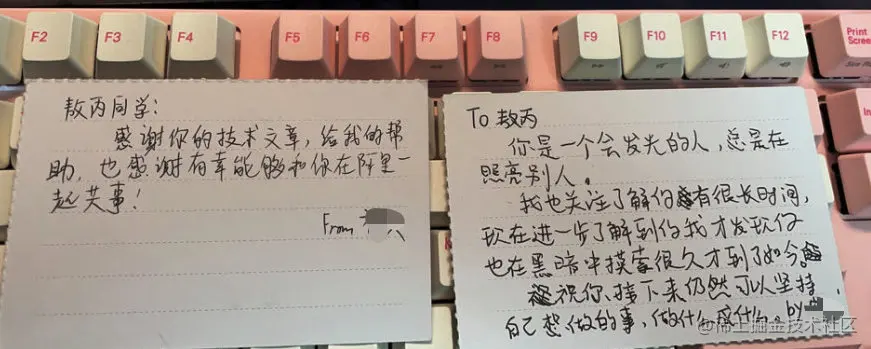 F2 F3 F4 F5 F6 F7 F8 F9 F10 F11 F12 Print
Screen
敖丙同学：
感谢你的技术文章，给我的帮
助，也感谢有幸能够和你在阿里一
起共事！
From
To 敖丙
你是一个会发光的人，总是在
照亮别人。
我也关注了解你有很长时间，
现在进一步了解到你我才发现你
也在黑暗中摸索很久才到了如今
祝你接下来仍然可以坚持
自己想做的事，做什么成什么。by
@稀土掘金技术社区